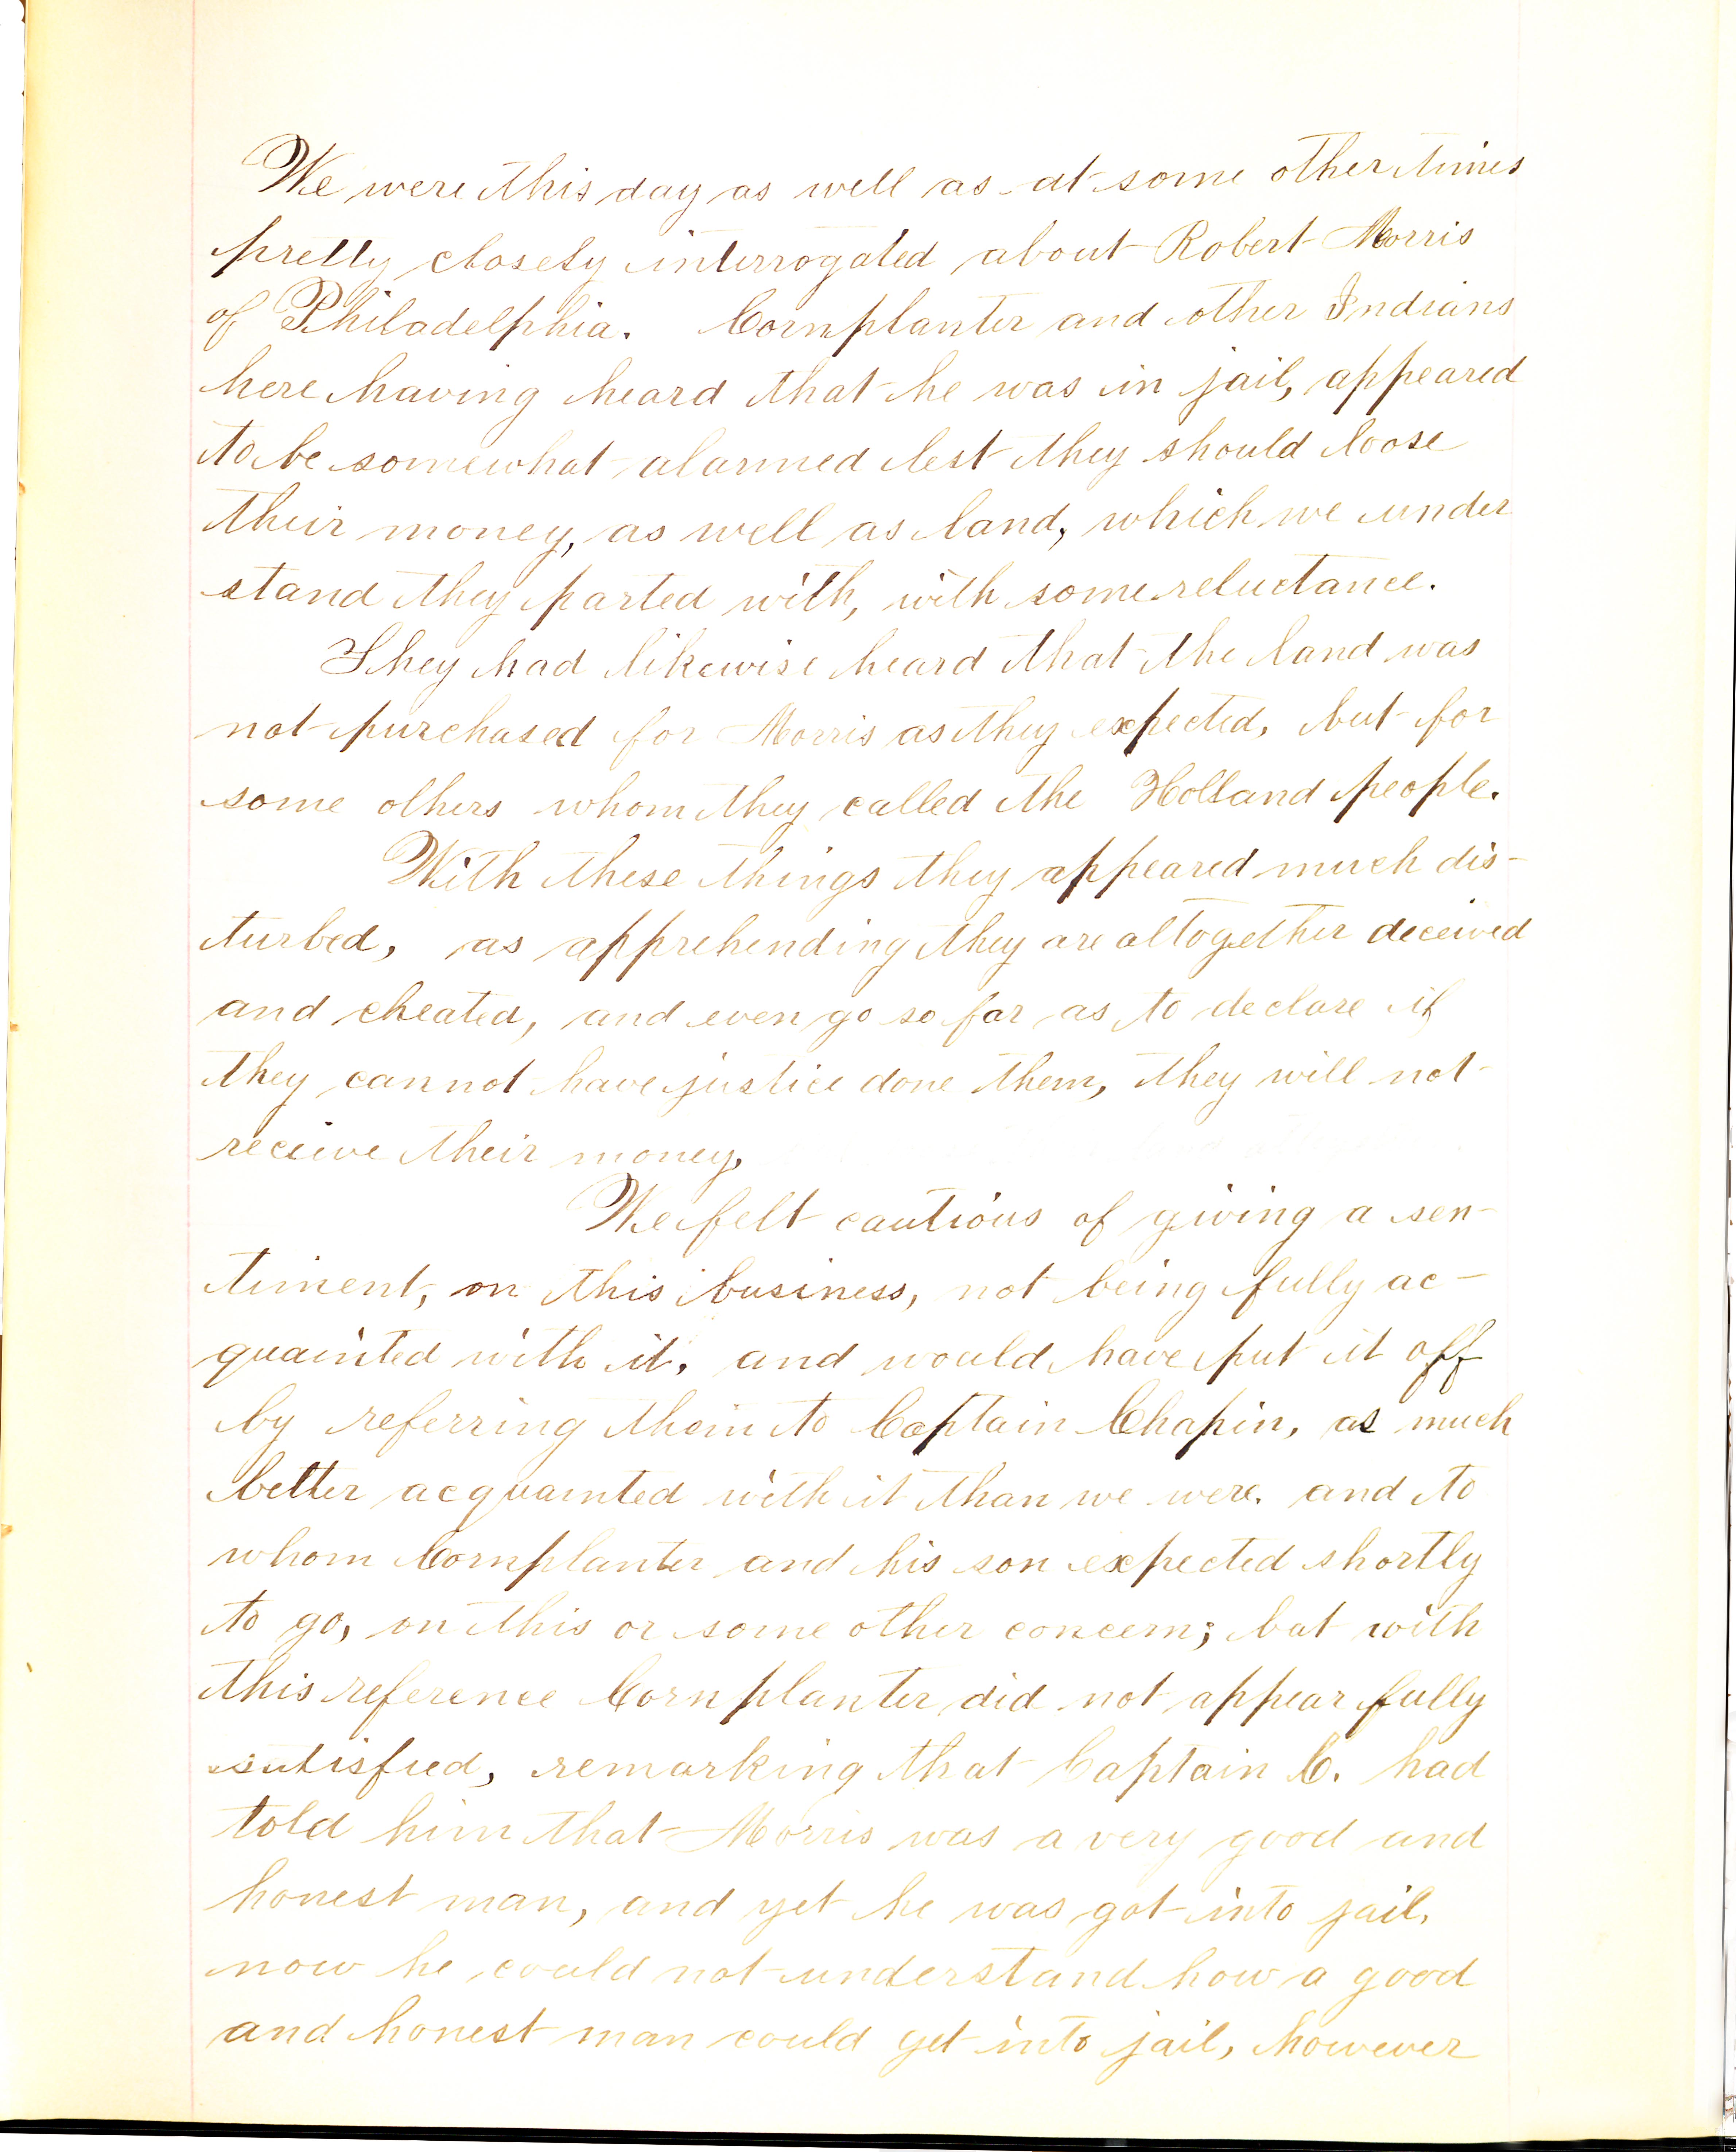 We were this day as well as at some other times
pretty closely interrogated about Robert Morris
of Philadelphia. Cornplanter and other Indians
here having heard that he was in jail, appeared
to be somewhat alarmed lest they should loose
their money, as well as land, which we under
stand they parted with, with some reluctance.
They had likewise heard that the land was
not purchased for Morris as they expected, but for
some others whom they called the Holland people.
With these things they appeared much dis-
turbed, as apprehending they are altogether deceived
and cheated, and even go so far as to declare if
they cannot have justice done them, they will not
receive their money.
We felt cautious of giving a sen-
timent, on this business, not being fully ac-
quainted with it, and would have put it off
by referring them to Captain Chapin, as much
better acquainted with it than we were. and to
whom Cornplanter and his son expected shortly
to go, on this or some other concern; but with
this reference Cornplanter did not appear fully
satisfied, remarking that Captain C. had
told him that Morris was a very good and
honest man, and yet he was got into jail,
now he could not understand how a good
and honest man could get into jail, however